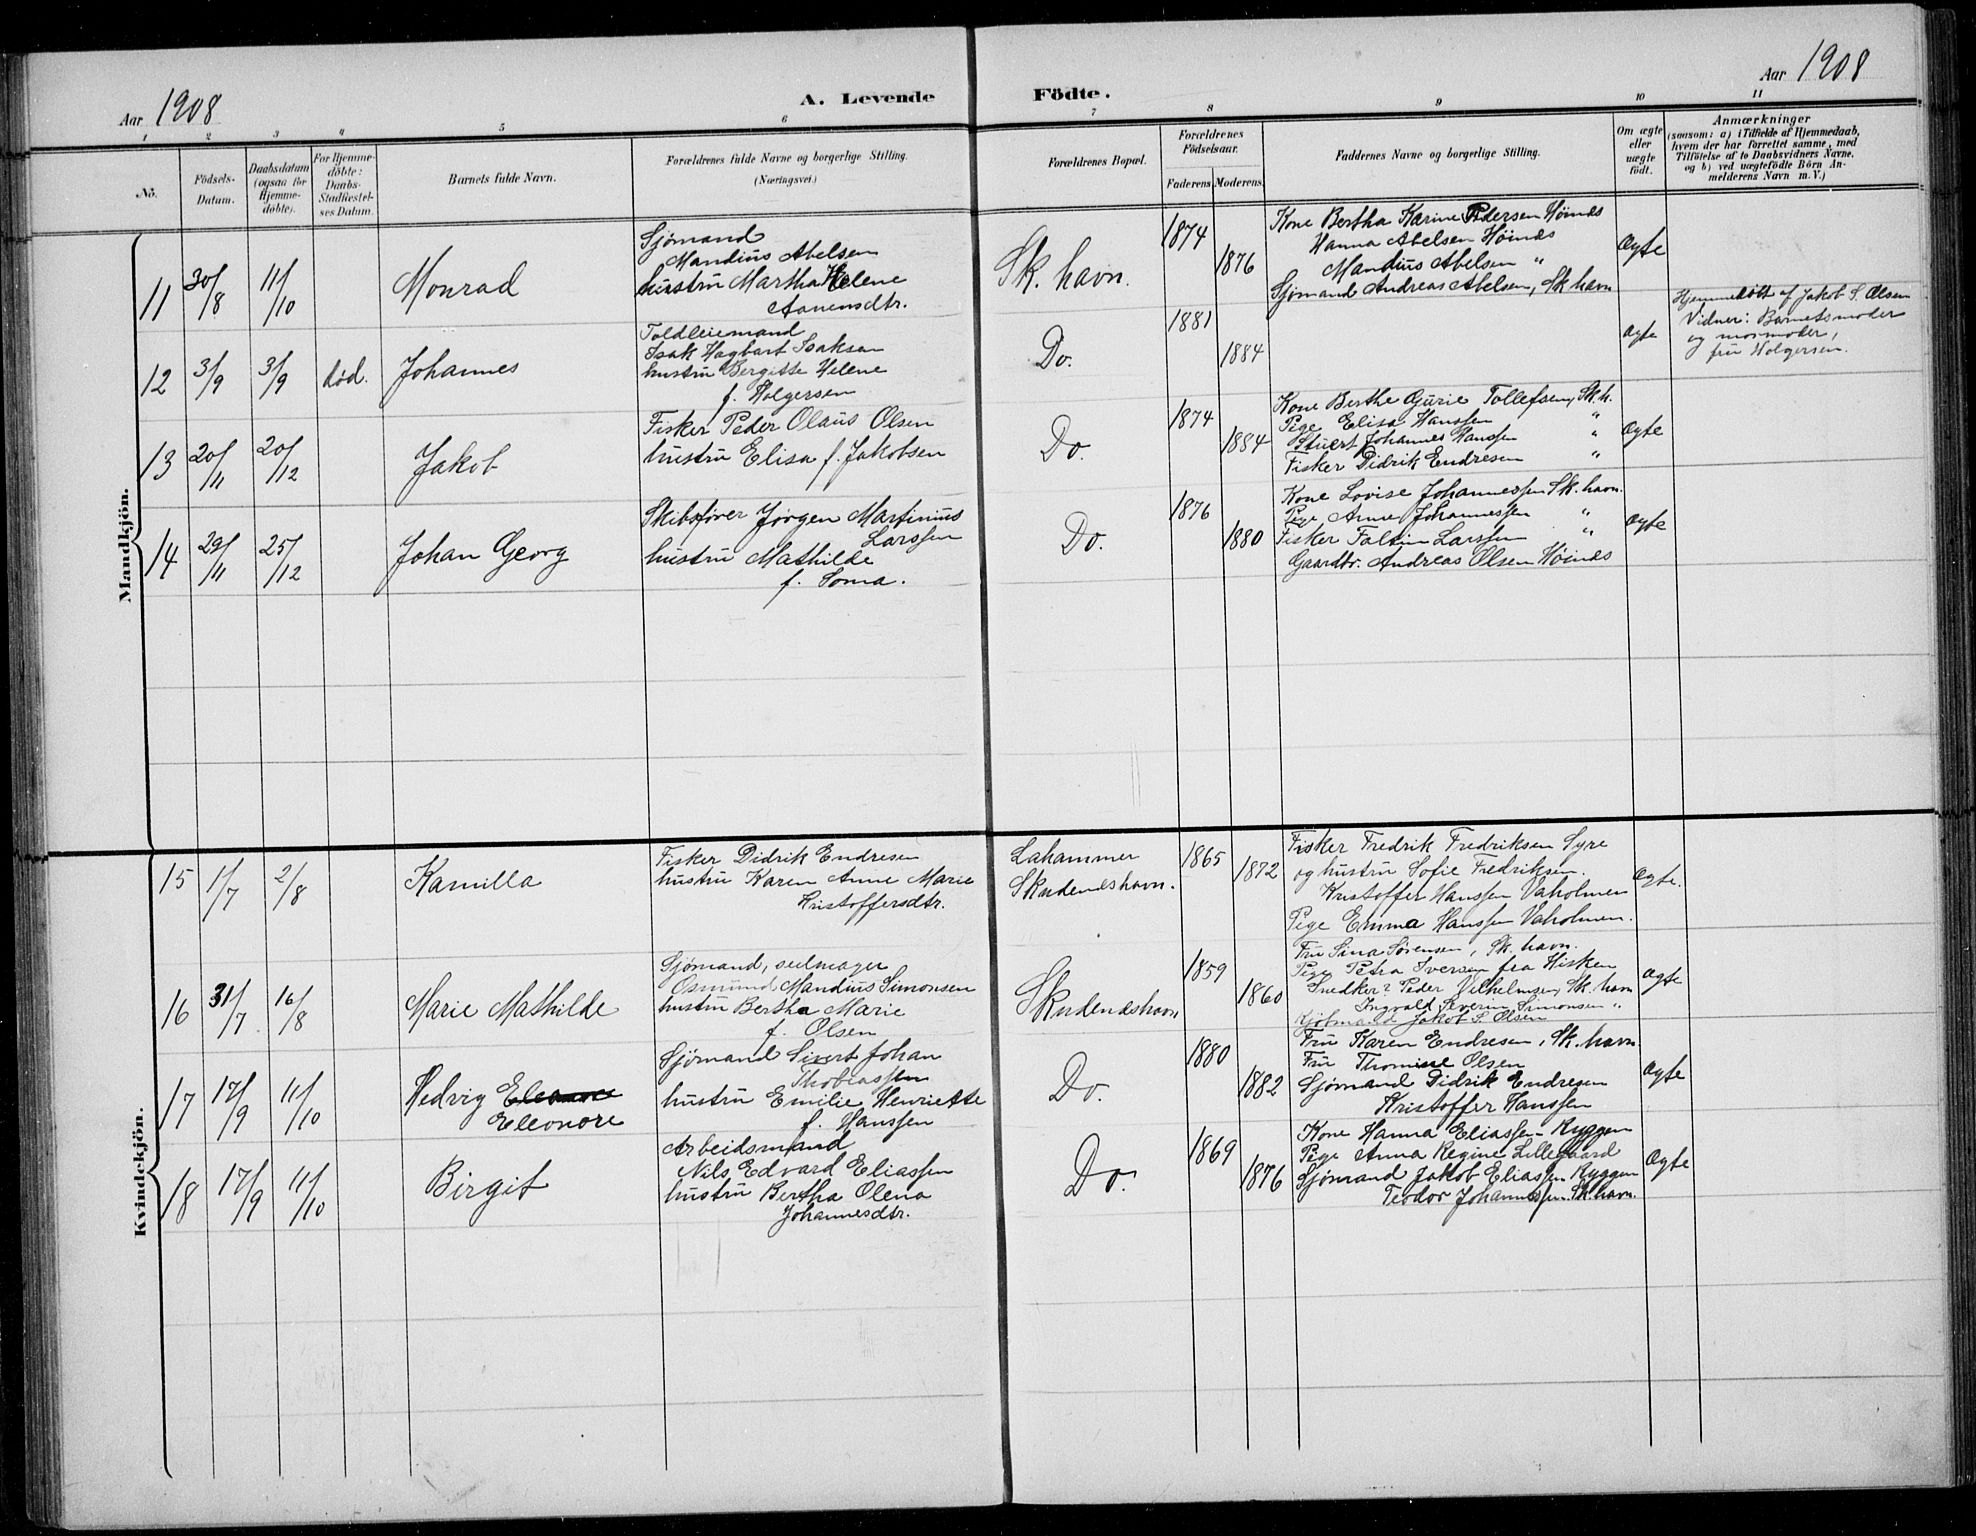 Aar 1908
A. Levende
Födte.
Aar 1908
1 2 3 4 5 6 7 8 9 10 11
No.
Födsels-
Datum.
Daabsdatum
(ogsaa for
Hjemme-
döbte).
For Hjemme-
döbte:
Daabs-
Stadfæstel-
ses Datum.
Barnets fulde Navn.
Forældrenes fulde Navne og borgerlige Stilling.
(Næringsvei.)
Forældrenes Bopæl.
Forældrenes
Födselsaar.
Faderens Moderens.
Faddernes Navne og borgerlige Stilling.
Om ægte
eller
uægte
födt.
Anmærkninger
(saasom: a) i Tilfælde af Hjemmedaab,
hvem der har forrettet samme, med
Tilföielse af to Daabsvidners Navne,
og b) ved uægtefödte Börn An-
melderens Navn m. V.)
Mandkjön.
11 30/8 11/10
Monrad
Sjømand
Mandius Abelsen
hustru Martha Helene
Aanensdtr.
Sk. havn.
1874
1876
Kone Bertha Karine Pedersen Høines
Hanna Abelsen Høines
Mandius Abelsen "
Sjømand Andreas Abelsen, Sk havn
Ægte
12 3/9 3/9 død.
Johannes
Toldleiemand
Isak Hagbart Isaksen
hustru Bergitte Helene
f. Holgersen
Do.
1881
1884
Ægte
Hjemmedøbt af Jakob S. Olsen
Vidner: Barnets moder
og mormoder,
fru Holgersen.
13 20/11 20/12
Jakob
Fisker Peder Olaus Olsen
hustru Elisa f. Jakobsen
Do.
1874
1884
Kone Berthe Gurie Tollefsen, Sk. h.
Pige Elisa Hanssen "
Stuert Johannes Hanssen "
Fisker Didrik Endresen "
Ægte
14 29/11 25/12
Johan Georg
Skibsfører Jørgen Martinius
Larssen
hustru Mathilde
f. Soma.
Do.
1876
1880
Kone Lovise Johannessen Sk. havn.
Pige Anne Johannessen "
Fisker Faltin Larssen "
Gaardbr. Andreas Olsen Høines
Ægte
Kvindekjön.
15 1/7 2/8
Kamilla
Fisker Didrik Endresen
hustru Karen Anne Marie
Kristoffersdtr.
Lahammer
Skudeneshavn.
1865
1872
Fisker Fredrik Fredriksen Syre
og hustru Sofie Fredriksen.
Kristoffer Hanssen Vaholmen
Pige Emma Hanssen Vaholmen.
Ægte.
16 31/7 16/8
Marie Mathilde
Sjømand, seilmager
Osmund Mandius Simonsen
hustru Bertha Marie
f. Olsen
Skudeneshavn
1859
1860
Fru Sina Sørensen, Sk. havn.
Pige Petra Iversen fra Hisken
Snedker Peder Vilhelmsen, Sk. havn
Ingvald Severin Simonsen "
Kjøbmand Jakob S. Olsen
Ægte
17 17/9 11/10
Hedvig Eleonore
Eleonore
Sjømand Sivert Johan
Thobiassen
hustru Emilie Henriette
f. Hanssen
Do.
1880
1882
Fru Karen Endresen, Sk. havn.
Fru Thomine Olsen
Sjømand Didrik Endresen
Kristoffer Hanssen
Ægte
18 17/9 11/10
Birgit
Arbeidsmand
Nils Edvard Eliassen
hustru Bertha Olena
Johannesdtr.
Do.
1869
1876
Kone Hanna Eliassen Ryggen
Pige Anna Regine Lillegaard
Sjømand Jakob Eliassen Ryggen
Teodor Johannessen Sk. havn.
Ægte